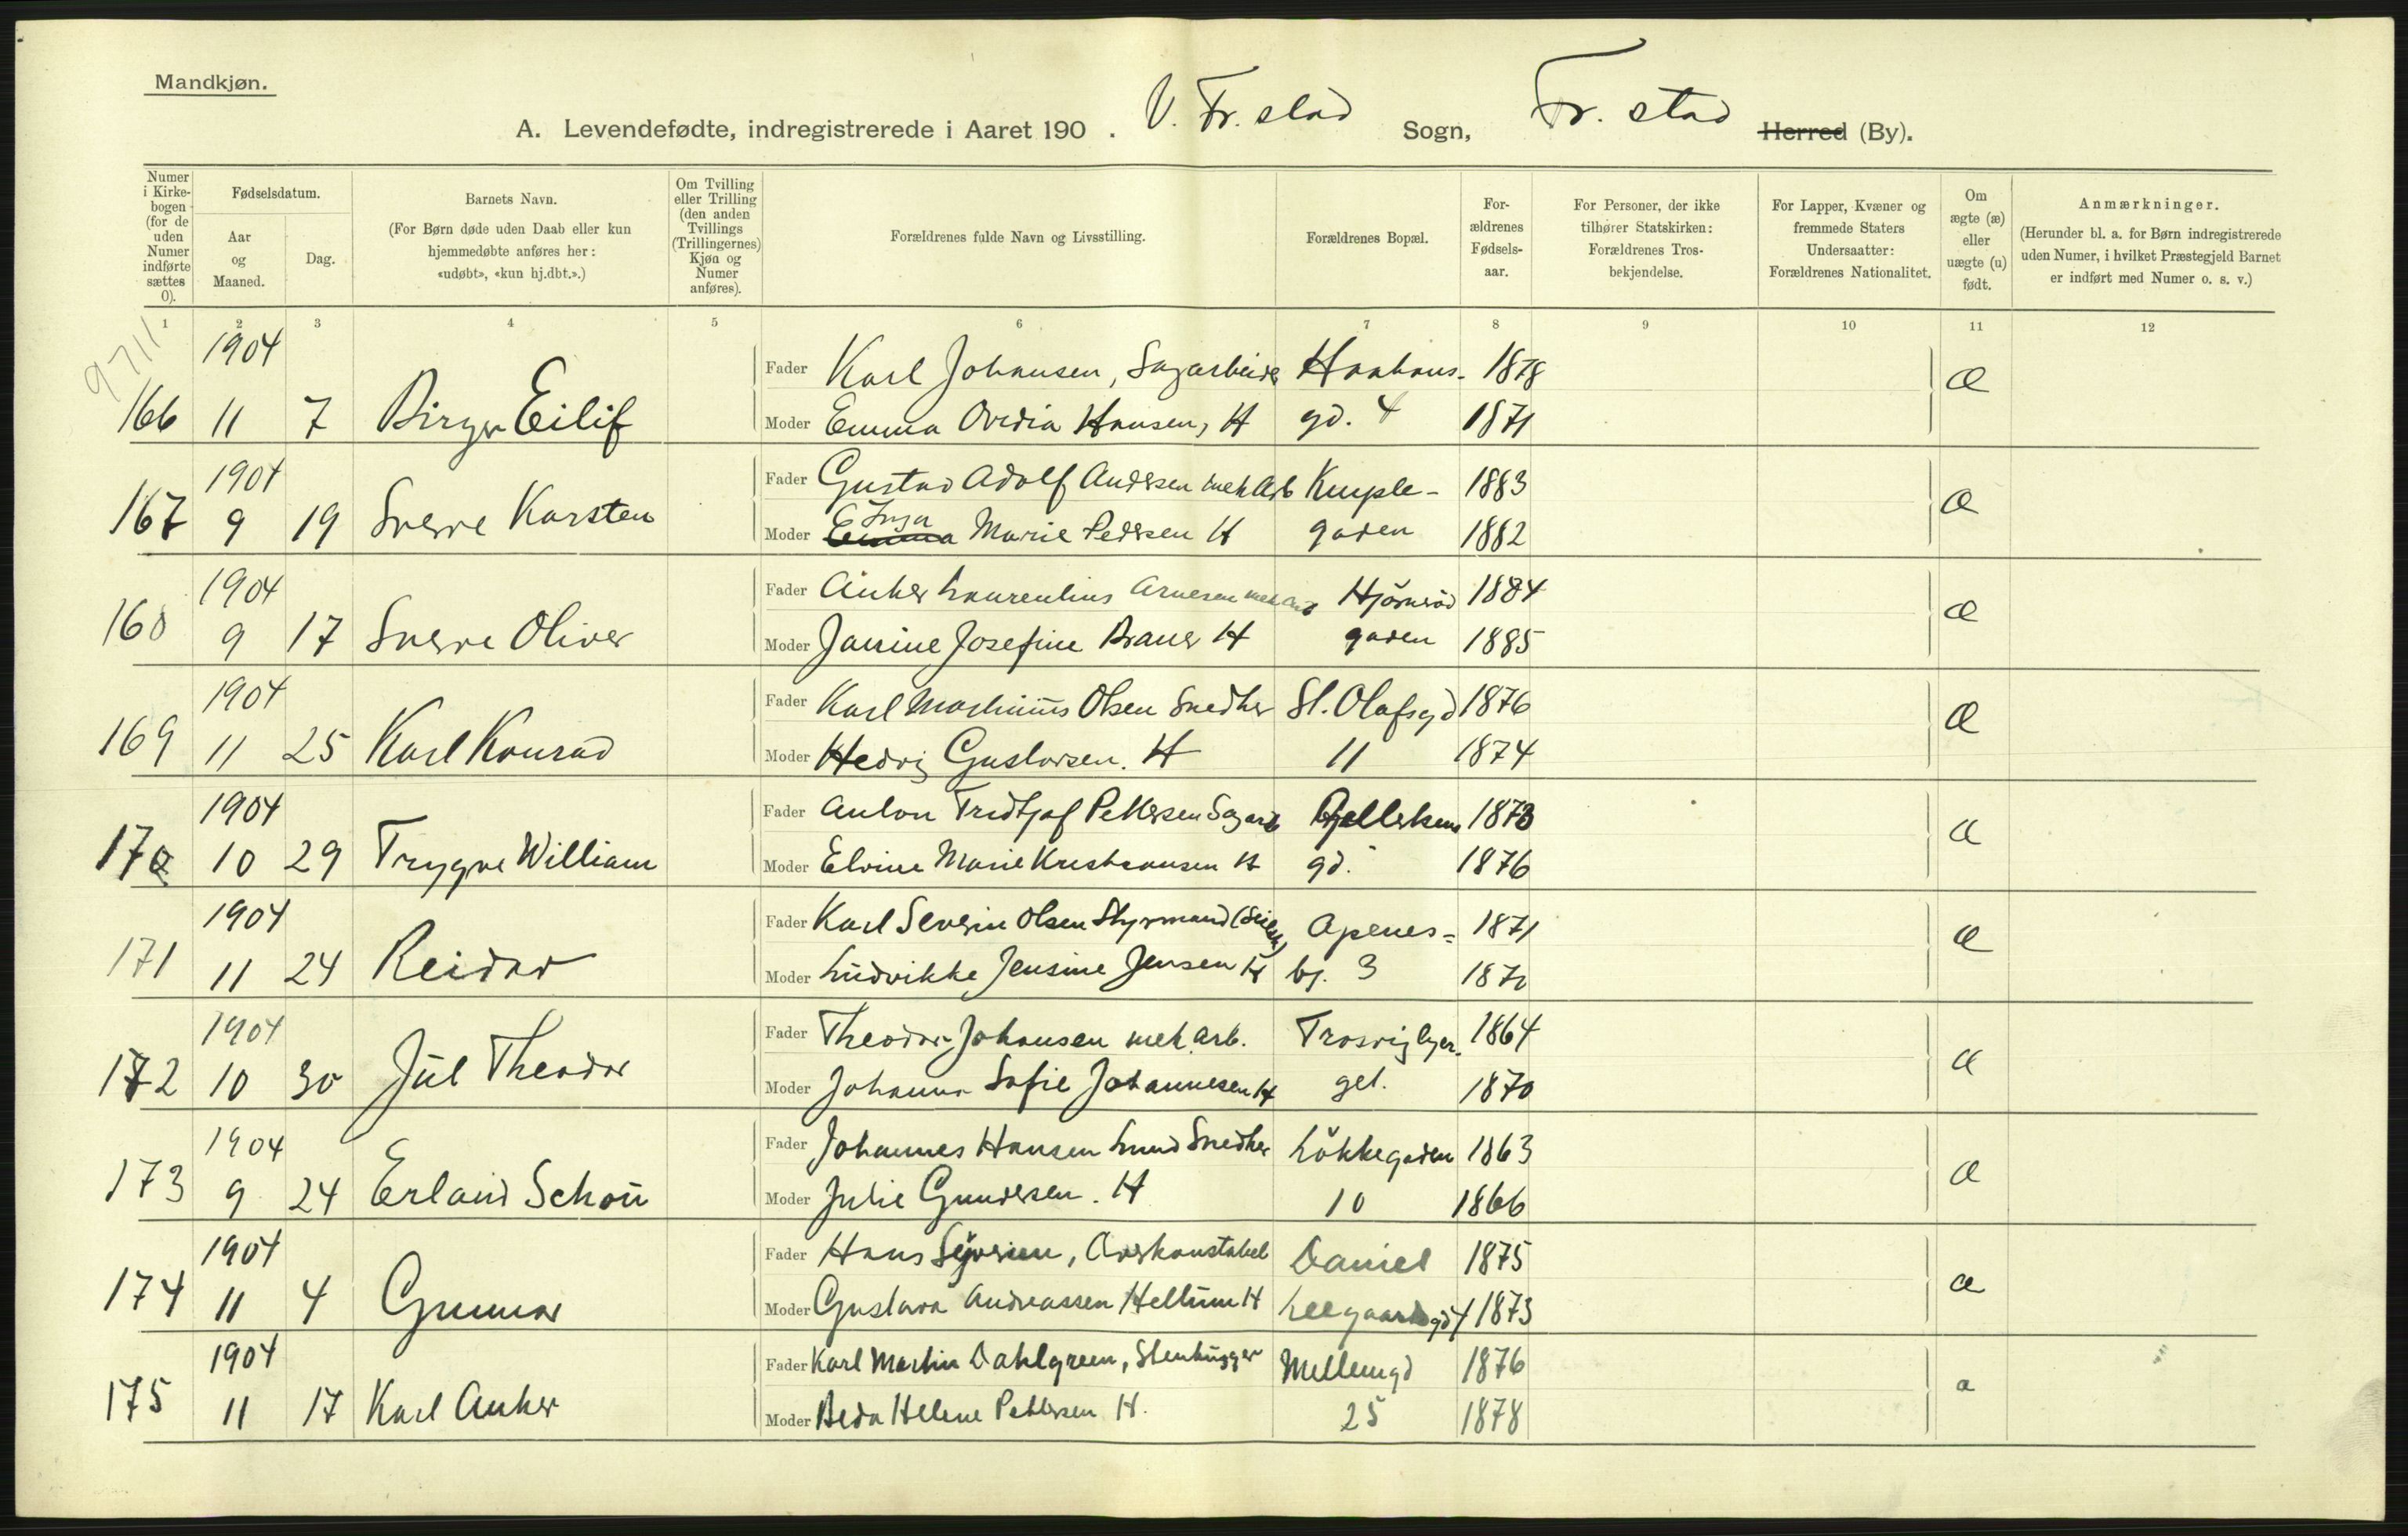 Mandkjøn.
A. Levendefødte, indregistrerede i Aaret 190 . V. Fr.stad Sogn, Fr.stad Herred (By).
Numer i Kirke-bogen (for de uden Numer indførte sættes 0).
Fødselsdatum.
Aar og Maaned.
Dag.
Barnets Navn.
(For Børn døde uden Daab eller kun hjemmedøbte anføres her: «udøbt», «kun hj.dbt.».)
Om Tvilling eller Trilling (den anden Tvillings (Trillingernes) Kjøn og Numer anføres).
Forældrenes fulde Navn og Livsstilling.
Forældrenes Bopæl.
For-ældrenes Fødsels-aar.
For Personer, der ikke tilhører Statskirken: Forældrenes Tros-bekjendelse.
For Lapper, Kvæner og fremmede Staters Undersaatter: Forældrenes Nationalitet.
Om ægte (æ) eller uægte (u) født.
Anmærkninger.
(Herunder bl. a. for Børn indregistrerede uden Numer, i hvilket Præstegjeld Barnet er indført med Numer o. s. v.)
1 2 3 4 5 6 7 8 9 10 11 12
9711
1904 Fader Karl Johansen, Sagarbeider Haahaus- 1878 æ
166 11 7 Birger Eilif Moder Emma Ovidia Hansen, H gd. 4 1871
1904 Fader Gustav Adolf Andersen mek Arb Kniple- 1883 æ
167 9 19 Sverre Karsten Moder Emma Inga Marie Pedersen H gaden 1882
1904 Fader Anker Laurentius Arnesen mek arb gaden 1884 æ
168 9 17 Sverre Oliver Moder Janine Josefine H 1885
1904 Fader Karl Martinius Olsen Snedker St. Olafsgd 1876 æ
169 11 25 Karl Konrad Moder Hedvig Gustavsen. H 11 1874
1904 Fader Anton Fridtjof Pettersen Sagarb 1873 æ
170 10 29 Trygve William Moder Elvine Marie Kristiansen H gd. 1876
1904 Fader Karl Severin Olsen Styrmand Apenes- 1871 æ
171 11 24 Reidar Moder Ludvikke Jensine Jensen H bj. 3 187
1904 Fader Theodor Johansen mek. arb. Trosvigbyer- 1864 æ
172 10 30 Jul Theodor Moder Johanna Sofie Johannesen H gel. 1870
1904 Fader Johannes Hansen Lund Snedker Løkkegaden 1863 æ
173 9 24 Erland Schou Moder Julie Gundersen. H 10 1866
1904 Fader Hans Syversen, Overkonstabel Daniel 1875 æ
174 11 4 Gunnar Moder Gustava Andreassen Hellum H Leegaardsgd 4 1873
1904 Fader Karl Martin Dahlgreen, Stenhugger Mellemgd 1876 æ
175 11 17 Karl Anker Moder Beda Helene Pettersen H. 25 1878